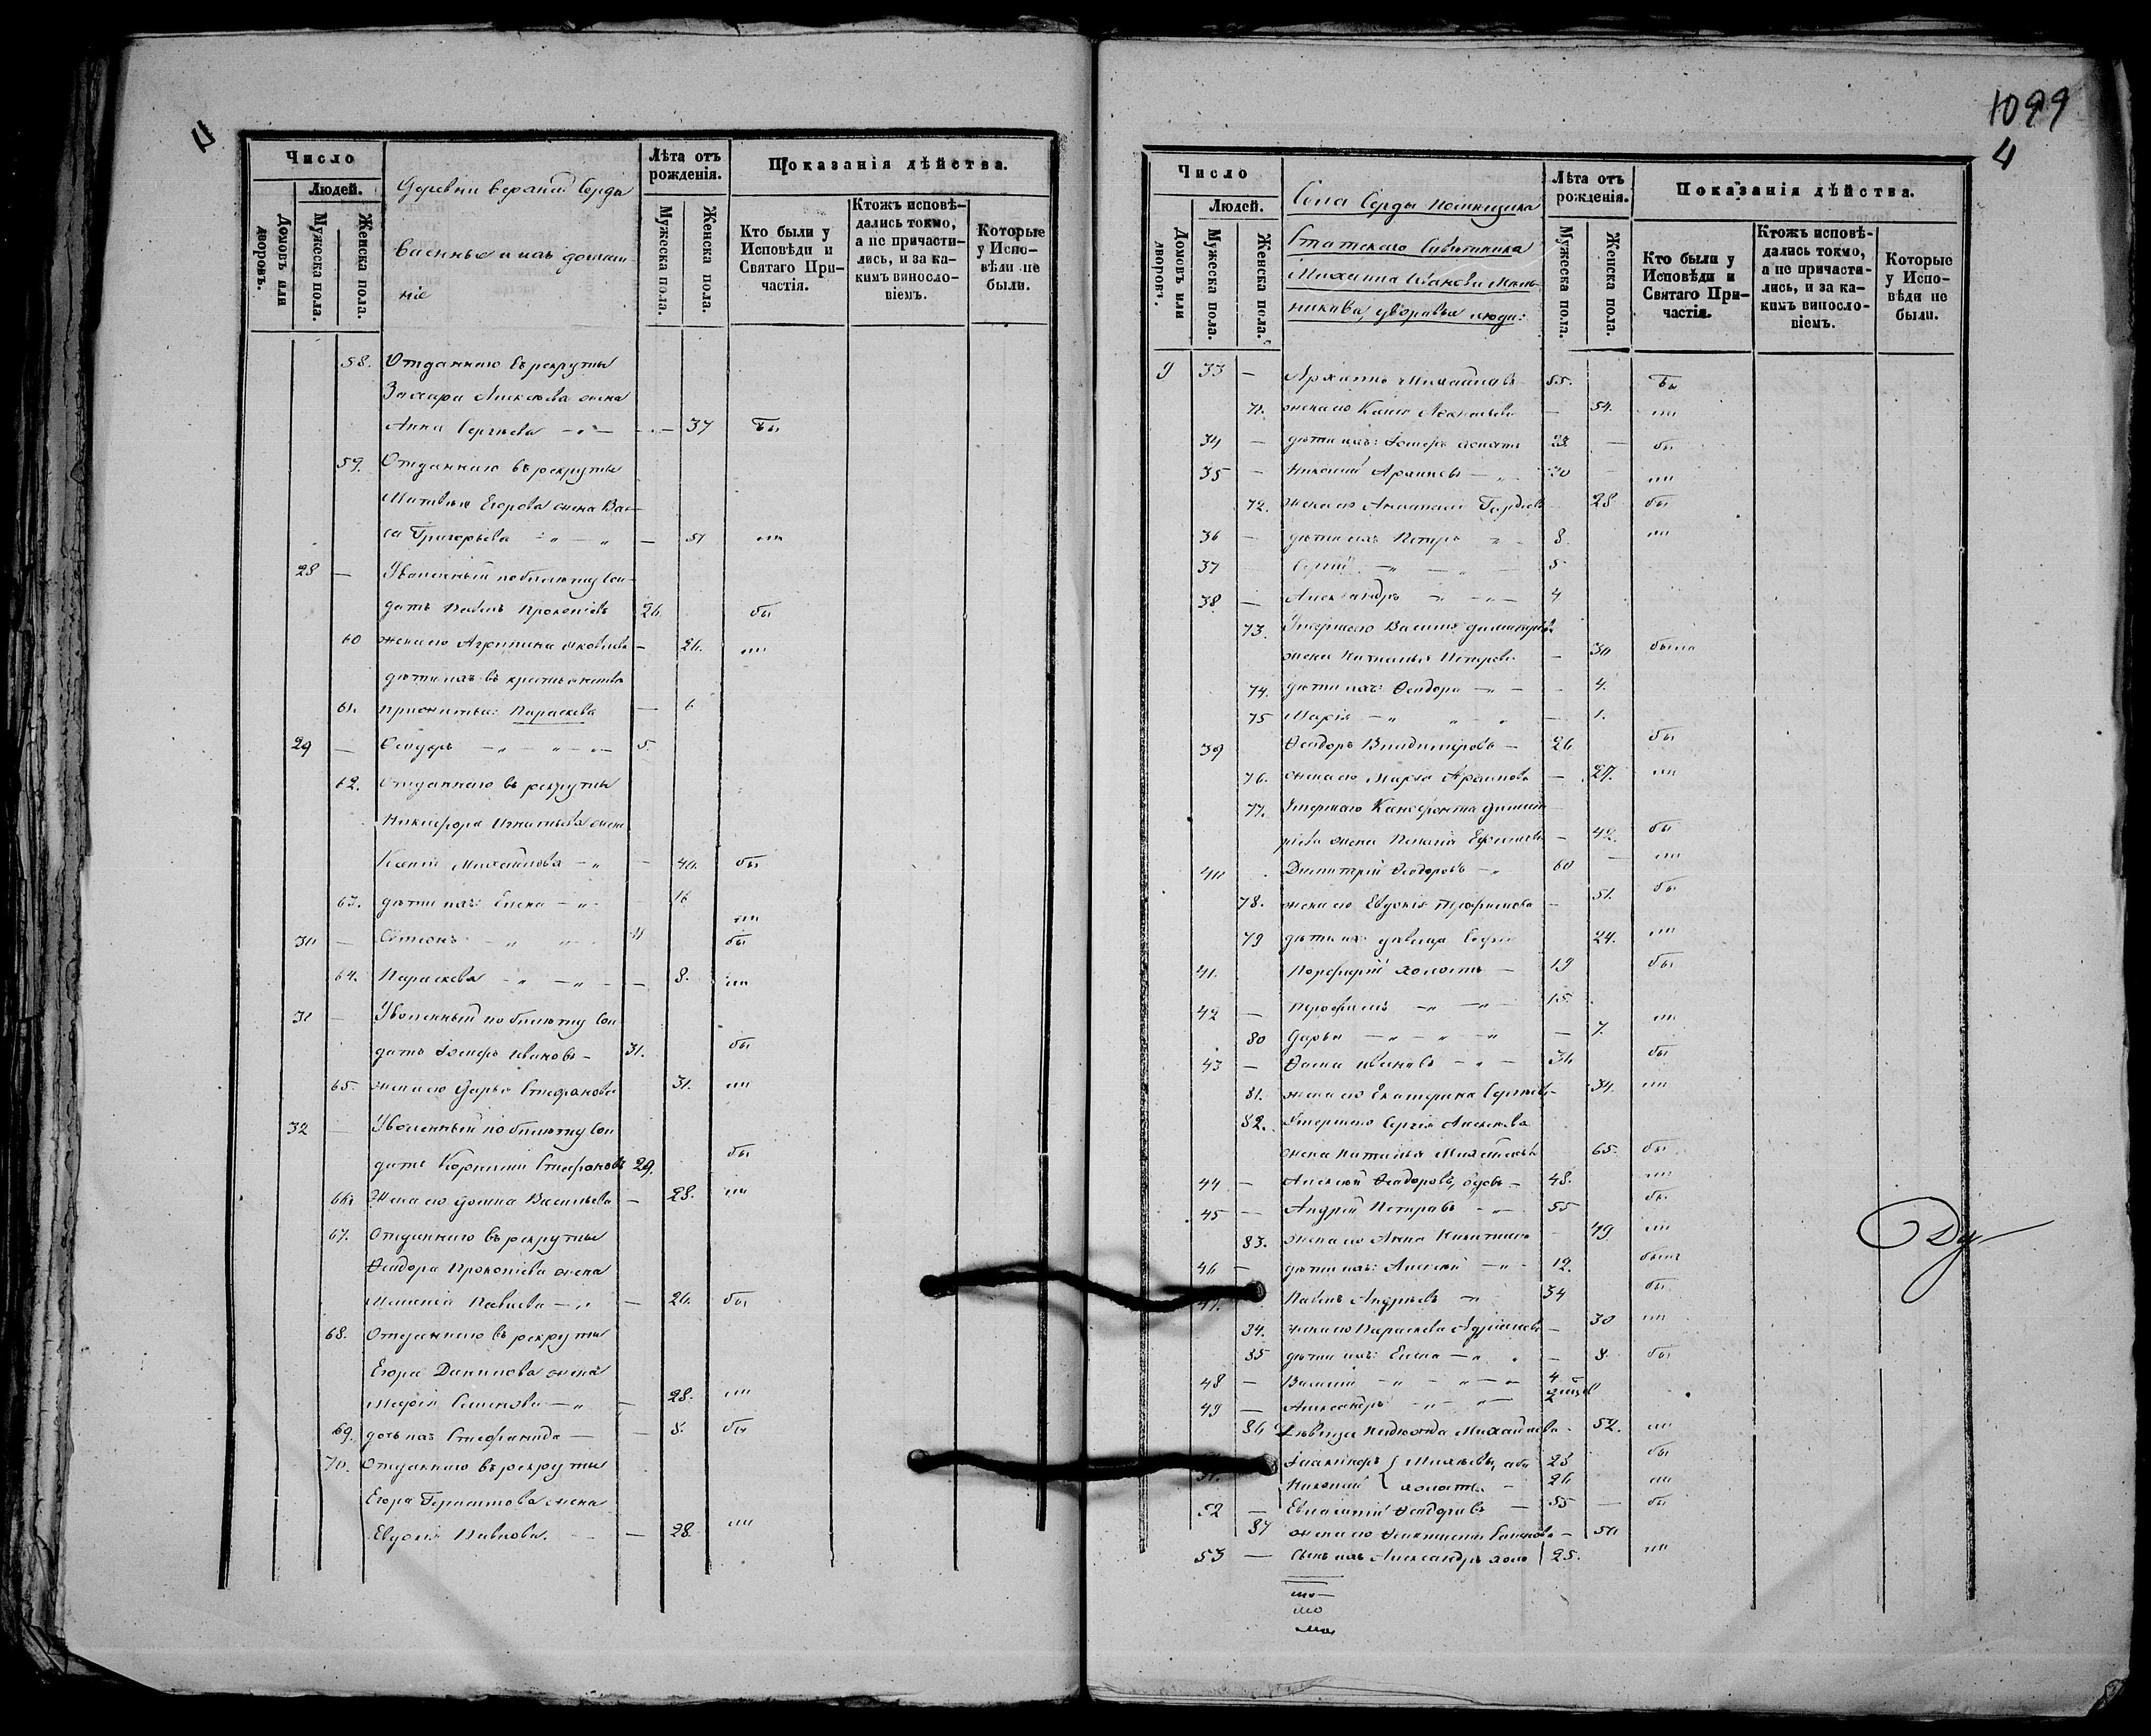 Число
Людей.
Домовъ или дворовъ.
Мужеска пола.
Женска пола.
Деревни Верхней Серды
военные и ихъ домаш-
ніе
Лѣта отъ рожденія.
Мужеска пола.
Женска пола.
Показанія дѣйства.
Кто были у Исповѣди и Святаго При-частія.
Ктожъ исповѣ-дались токмо, а не причасти-лись, и за ка-кимъ винослo-віемъ.
Которые у Испо-вѣди не были.
58. Отданнаго въ рекруты
Захара Алексѣева жена
Анна Сергѣева — 37 бы
59. Отданнаго въ рекруты
Егорова жена Вас-
са Григорьева — 51
28 — Уволенный по билету сол-
датъ Павелъ Прокопіевъ 26 бы
60 жена его Агрипина Яковлева — 26.
дѣти ихъ въ крестьянствѣ
61. прижитые: Параскева — 6
29 — Ѳеодоръ 5.
62. Отданнаго въ рекруты
Никифора Игнатьева жена
Ксенія Михайлова — 40. бы
63. дѣти ихъ: Елена 16
30 — Симеонъ 11 бы
64. Параскева — 8.
31 — Уволенный по билету сол-
датъ Іосифъ Ивановъ — 31. бы
65. жена его Дарья Стефанова 31.
32 — Уволенный по билету сол-
датъ Корнилій Стефановъ 29. бы
66 жена его Домна Васильева — 28.
67. Отданнаго въ рекруты
Ѳеодора Прокопіева жена
Меланія Павлова — 26. бы
68. Отданнаго въ рекруты
Егора Данилова жена
Марія Семенова — 28.
69. дочь ихъ Стефанида — 8. бы
70. Отданнаго въ рекруты
Егора Герасимова жена
Евдокія Павлова. — 28
1099
4
Число
Людей.
Домовъ или дворовъ.
Мужеска пола.
Женска пола.
Села Серды помѣщика
Статскаго Совѣтника
Михаила Иванова Мель-
никова, дворовые люди:
Лѣта отъ рожденія.
Мужеска пола.
Женска пола.
Показанія дѣйства.
Кто были у Исповѣди и Святаго При-частія.
Ктожъ исповѣ-дались токмо, а не причасти-лись, и за ка-кимъ виносло-віемъ.
Которые у Испо-вѣди не были.
9 33 — Архиппъ Михайловъ 55. бы
71. жена его — 54.
34 — дѣти ихъ: Іосифъ холостъ 23. — бы
35 — Архиповъ 30
72. жена его 28 бы
36 — дѣти ихъ Петръ 8.
37 Сергій 5
38 — Александръ 4
73. Умершаго Василія Димитріева
жена Наталья Петрова — 30 была
74. дѣти ихъ: Ѳеодора — 4.
75 Марія — 1.
39 Ѳеодоръ Владиміровъ — 26 бы
76. жена его Марѳа Архипова — 27.
77. Умершаго Ксенофонта Димит-
ріева жена Пелагія Ефимова — 42. бы
40 Димитрій Ѳеодоровъ 60
78. жена его Евдокія Трофимова — 51. бы
79 дѣти ихъ: дѣвица Софія 24.
41. Порфирій холостъ — 19 бы
42 — Трофимъ 15.
80 Дарья — 7.
43 — Ѳома Ивановъ 36 бы
81. жена его Екатерина Сергѣева 34.
82. Умершаго Сергія Алексѣева
жена Наталья Михайлова 65. бы
44 — Алексій Ѳеодоровъ, вдовъ — 48.
45 — Андрей Петровъ 55 бы
83. жена его Анна Никитина 49
46 — дѣти ихъ: Алексій 12. былъ
47. Павелъ Андреевъ 34 бы
84. жена его Параскева Адріанова — 30
85 дѣти ихъ: Елена — 8. бы
48 — Василій 4
49 — Александръ
86 Дѣвица Михайлова 52. —
Никаноръ } Михѣевы, оба 28 бы
51. } холосты 26
52 — Евлампій Ѳеодоровъ — 55 — бы
87 жена его Семенова — 50
53 — Сынъ ихъ Александръ холо 25.